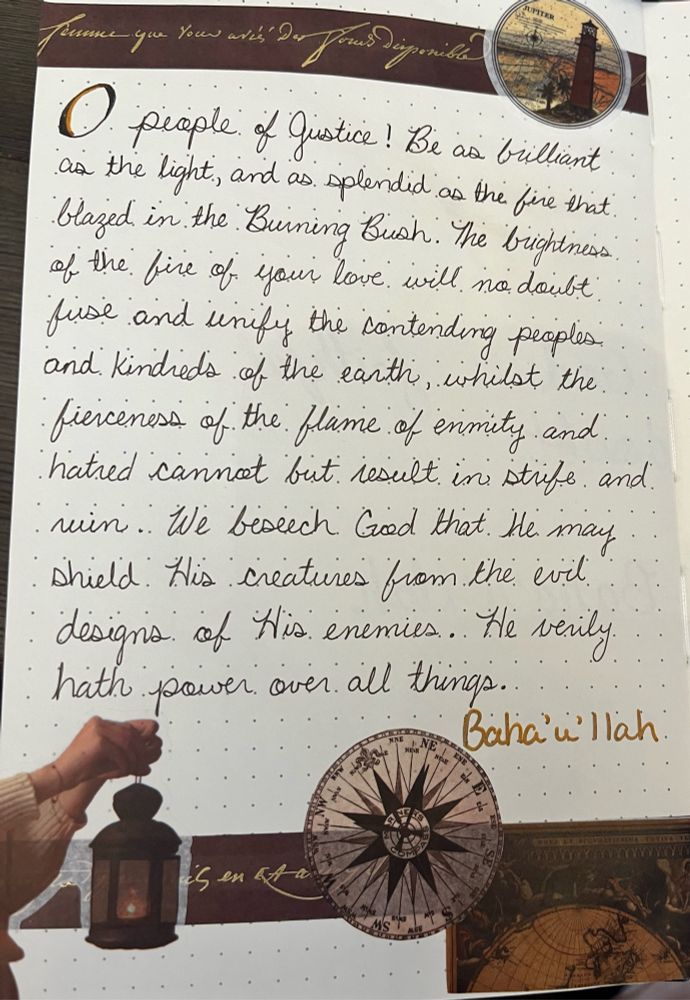 femme que vous aviés Des Jours disponible
JUPITER
O people of Justice! Be as brilliant
as the light, and as splendid as the fire that
blazed in the Burning Bush. The brightness
of the fire of your love will no doubt
fuse and unify the contending peoples
and kindreds of the earth, whilst the
fierceness of the flame of enmity and
hatred cannot but result in strife and
ruin. We beseech God that He may
shield His creatures from the evil
designs of His enemies. He verily
hath power over all things.
Baha'u'llah
NNE
NE
ENE
E
SE
S
SW
W
NW
en